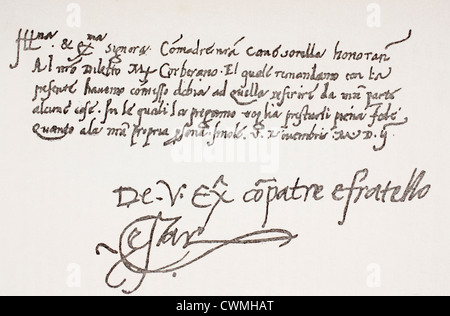 Ill.ma & Ex.ma Signora Comadre n.ra come sorella honoran.
Al n.ro Diletto Corberano. El quale remandamo con la
presente havemo comisso debia ad quella referire da n.ra parte
alcune cose. In le quali la pregamo voglia prestarli piena fede
Quanto a la n.ra propria p.sona. Imole. V. Novembris M D ij
De. V. Ex. co͂patre e fratello
Cesar
alamy
CWMHAT